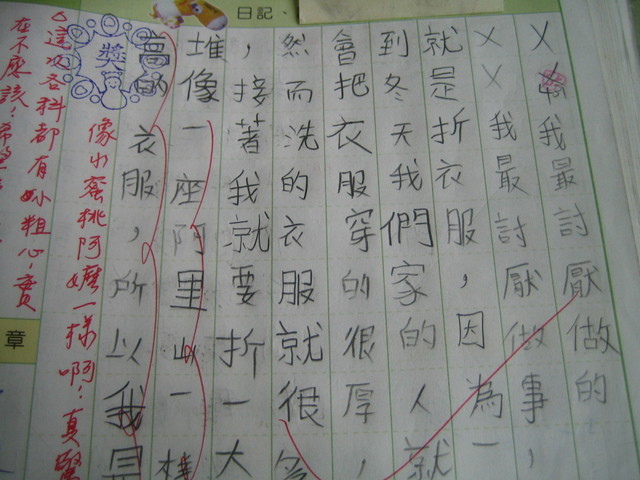 日記、
我最討厭做的
我最討厭做事，
就是折衣服，因為一
到冬天我們家的人就
會把衣服穿的很厚，
然而洗的衣服就很多
，接著我就要折一大
堆像一座阿里山一樣
高的衣服，所以我最
獎
像水蜜桃阿嬤一樣啊！真驚
這次各科都有小粗心，實
在不應該！
章